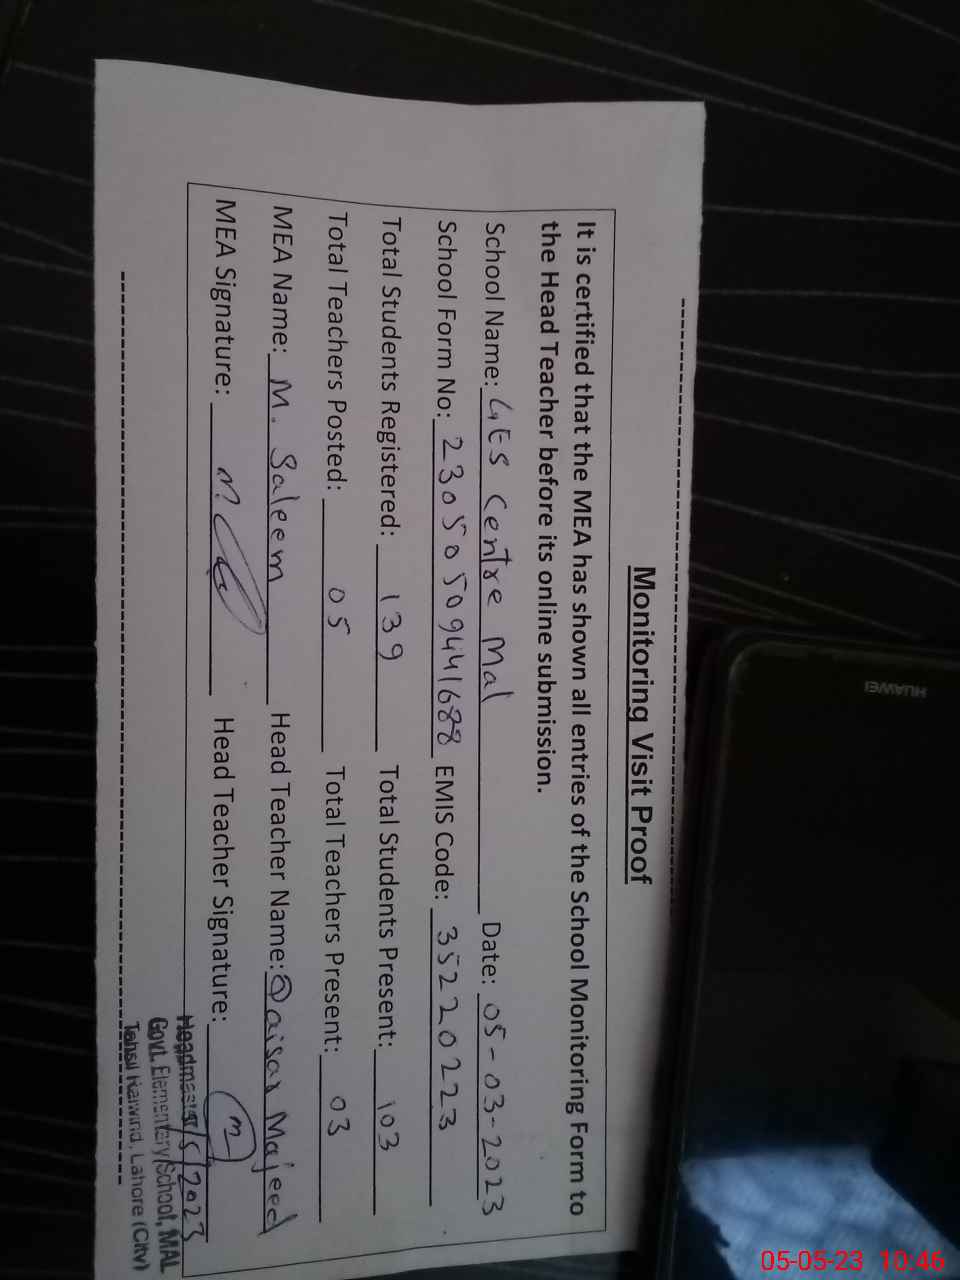 Monitoring Visit Proof
It is certified that the MEA has shown all entries of the School Monitoring Form to
the Head Teacher before its online submission.
School Name: GES Centre Mal Date: 05-03-2023
School Form No: 23050509441688 EMIS Code: 35220223
Total Students Registered: 139 Total Students Present: 103
Total Teachers Posted: 05 Total Teachers Present: 03
MEA Name: M. Saleem Head Teacher Name: Qaisar Majeed
MEA Signature: Head Teacher Signature:
Headmaster /5/2023
Govt. Elementary School, MAL
Tehsil Raiwind, Lahore (City)
HUAWEI
05-05-23 10:46